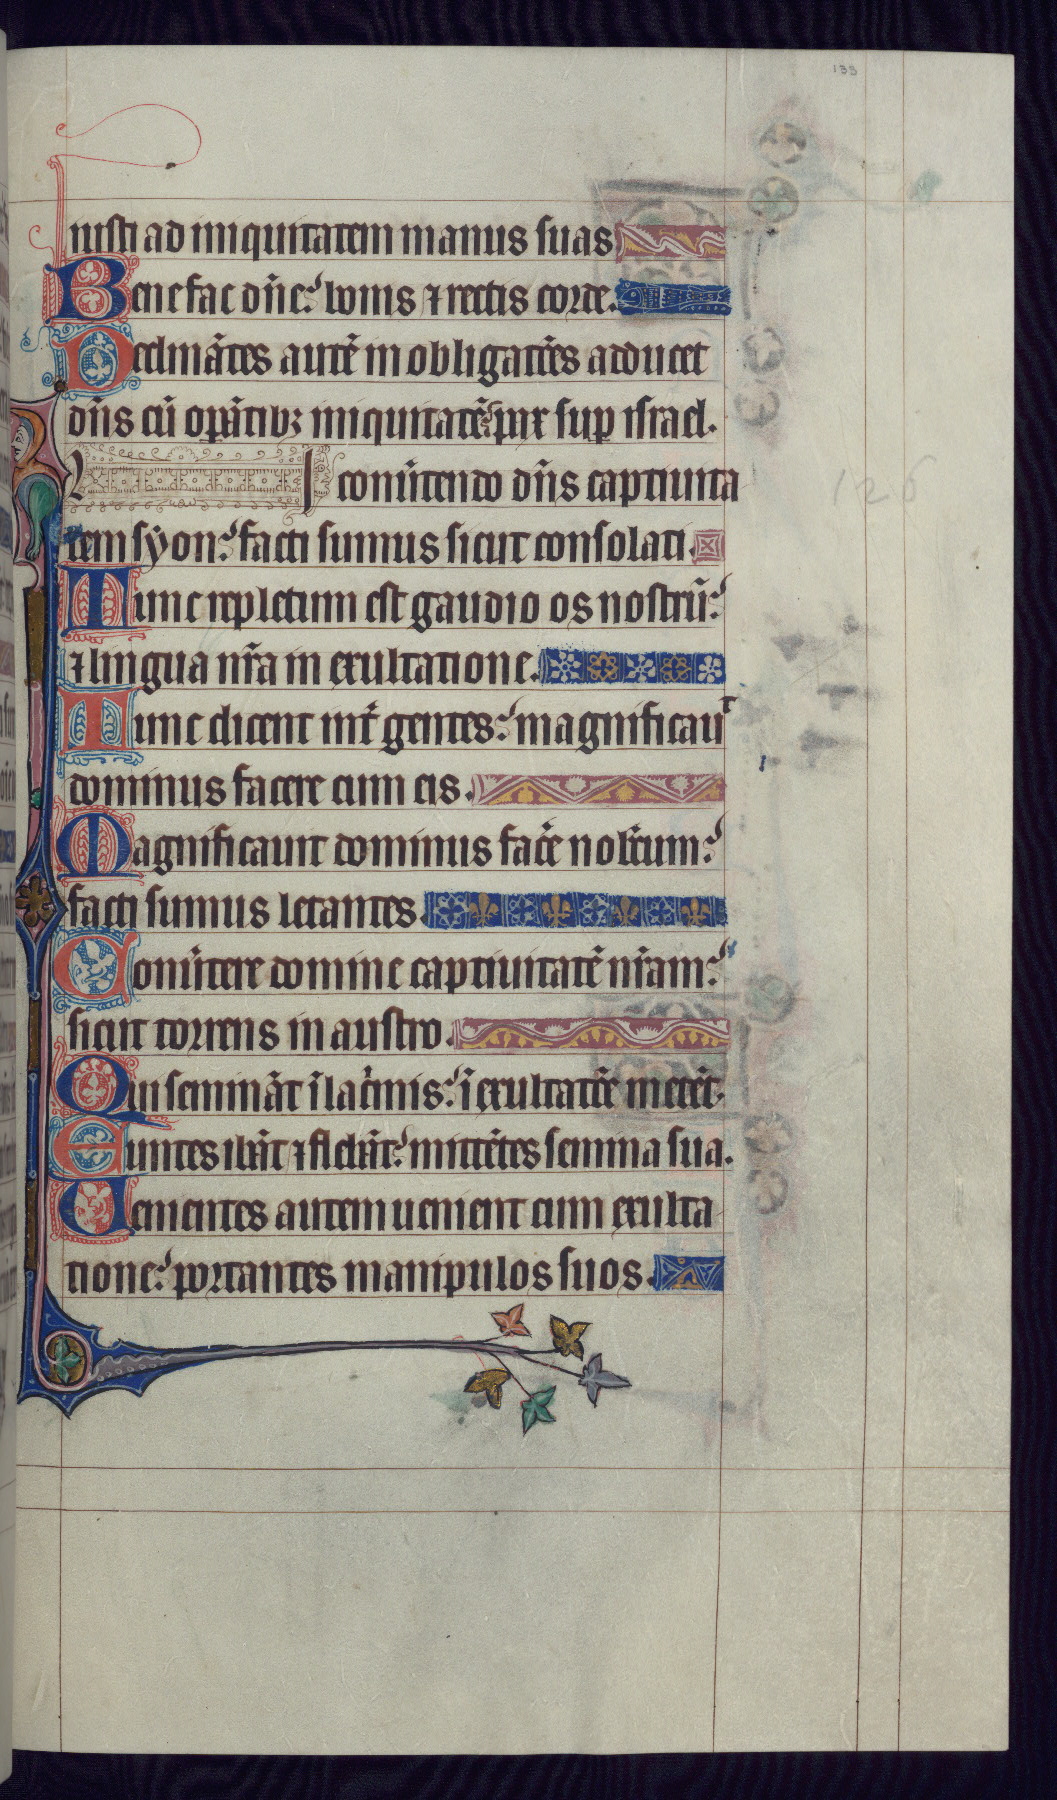 133
iusti ad iniquitatem manus suas
Benefac dñe: bonis ⁊ rectis corde.
Declinãtes autẽ in obligatões adducet
dñs cũ opãtibꝫ iniquitatẽ: pax suꝑ israel.
I conũtendo dñs captiuita
126
tem syon: facti sumus sicut consolati.
Tunc repletum est gaudio os nostrũ:
⁊ lingua nr̃a in exultatione.
Tunc dicent int̃ gentes: magnificauᵗ
dominus facere cum eis.
Magnificauit dominus fac̃e nobiscum:
facti sumus letantes.
Conũtere domine captiuitatẽ nr̃am:
sicut torrens in austro.
Qui seminãt ĩ lac̃mis: ĩ exultatõe metẽt.
Euntes ibãt ⁊ flebãt: mittẽtes semina sua.
Uenientes autem uenient cum exulta
tione: portantes manipulos suos.